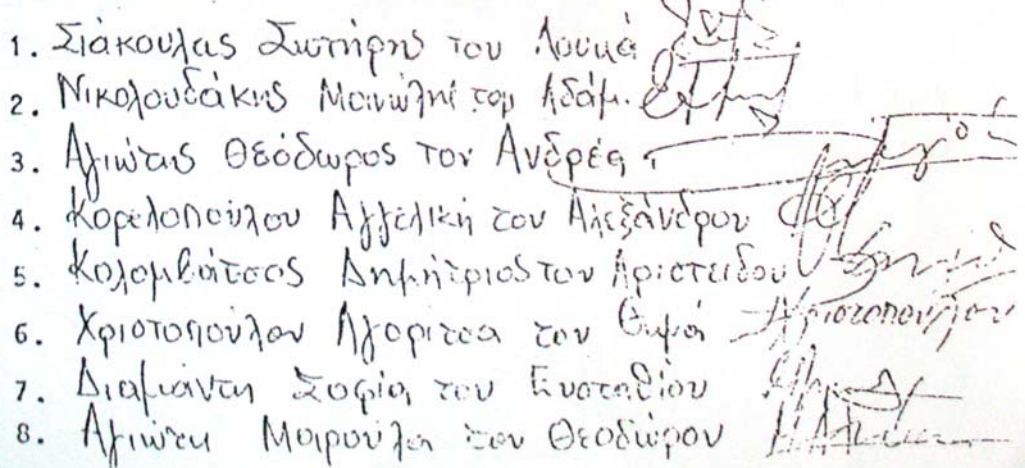 1. Σιάκουλας Σωτήρης του Λουκά
2. Νικολουδάκης Μανώλης του Αδάμ.
3. Αγιώτης Θεόδωρος του Ανδρέα
4. Κορελοπούλου Αγγελική του Αλεξάνδρου
5. Κολομβάτσος Δημήτριος του Αριστείδου
6. Χριστοπούλου Αγορίτσα του Θωμά Χριστοπούλου
7. Διαμάντη Σοφία του Ευσταθίου
8. Αγιώτη Μαρούλα του Θεοδώρου